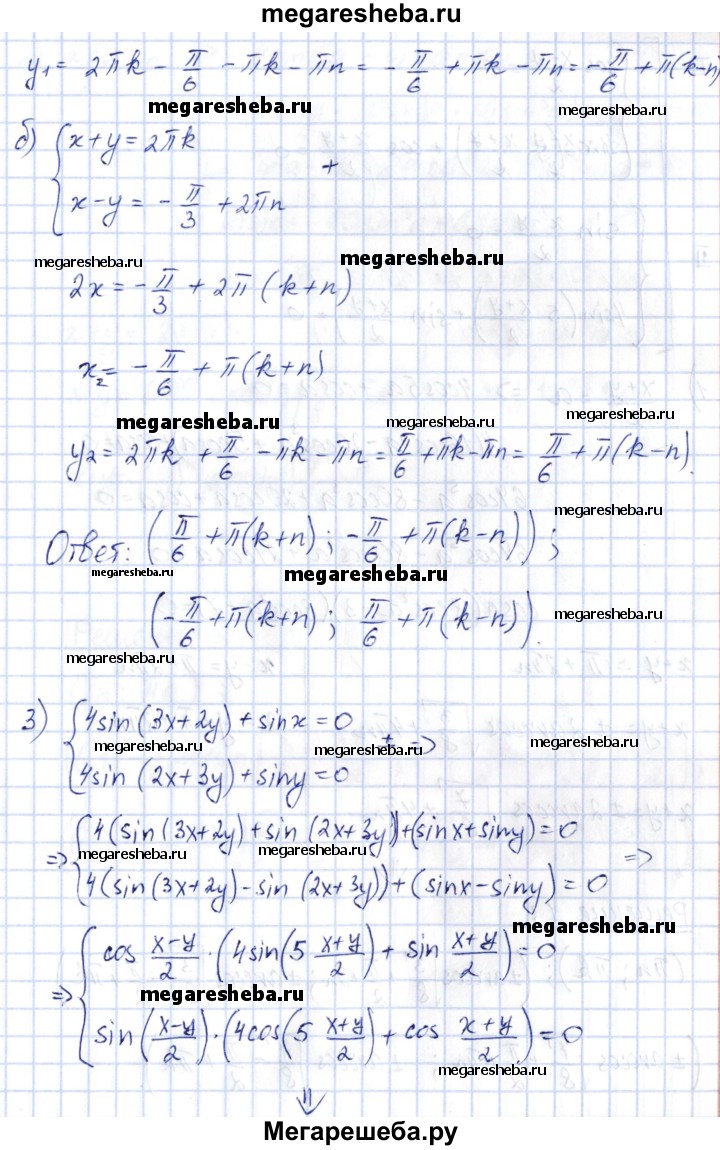 megaresheba.ru
y₁ = 2πk - π/6 - πk - πn = - π/6 + πk - πn = - π/6 + π(k-n)
megaresheba.ru
megaresheba.ru
б) { x+y = 2πk
+
x-y = - π/3 + 2πn
megaresheba.ru
megaresheba.ru
2x = - π/3 + 2π (k+n)
x₂ = - π/6 + π(k+n)
megaresheba.ru
megaresheba.ru
megaresheba.ru
y₂ = 2πk + π/6 - πk - πn = π/6 + πk - πn = π/6 + π(k-n).
megaresheba.ru
Ответ: (π/6 + π(k+n); - π/6 + π(k-n));
megaresheba.ru
megaresheba.ru
(- π/6 + π(k+n); π/6 + π(k-n)).
megaresheba.ru
megaresheba.ru
3) { 4sin(3x+2y) + sinx = 0
megaresheba.ru
megaresheba.ru
megaresheba.ru
+ =>
4sin (2x+3y) + siny = 0
=> { 4(sin(3x+2y) + sin (2x+3y)) + (sinx + siny) = 0
megaresheba.ru
megaresheba.ru
=>
4(sin(3x+2y) - sin (2x+3y)) + (sinx - siny) = 0
megaresheba.ru
=> { cos (x-y)/2 · (4sin(5 (x+y)/2) + sin (x+y)/2) = 0
megaresheba.ru
sin((x-y)/2) · (4cos(5 (x+y)/2) + cos (x+y)/2) = 0
megaresheba.ru
⇓
Мегарешеба.ру